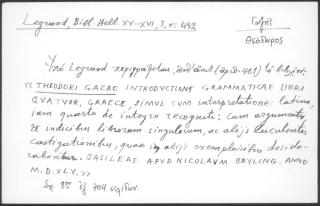 Legrand, Bibl. Hell. XV-XVI, 3, σ. 432
Γαζῆς
Θεόδωρος
Ὑπὸ Legrand περιγράφεται, (ἀριθ. 461) τὸ βιβλίον:
« THEODORI GAZAE INTRODUCTIONIS GRAMMATICAE LIBRI
QVATVOR, GRAECE, SIMVL CVM interpretatione latina,
iam quarto de integro recogniti: cum argumentis
& indicibus librorum singulorum, ac alijs luculentis
castigationibus, quae in alijs exemplaribus deside-
rabantur. BASILEAE APVD NICOLAVM BRYLING. ANNO
M.D.XLV. »
Σχ. 8ον 704